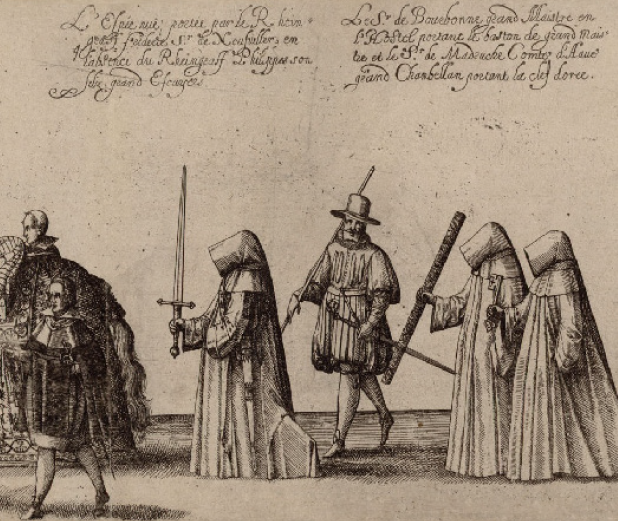 L'Espie nüe portee par le Rhein:
graff
Sr. de Neufviller en
l'absence du Rheingraff Philippes son
filz, grand Escuyer
Le Sr. de Bourbonne grand Maistre en
l'Hostel portant le baston de grand Mais
tre et le Sr. de
Comte d'Have
grand Chambellan portant la clef doree.